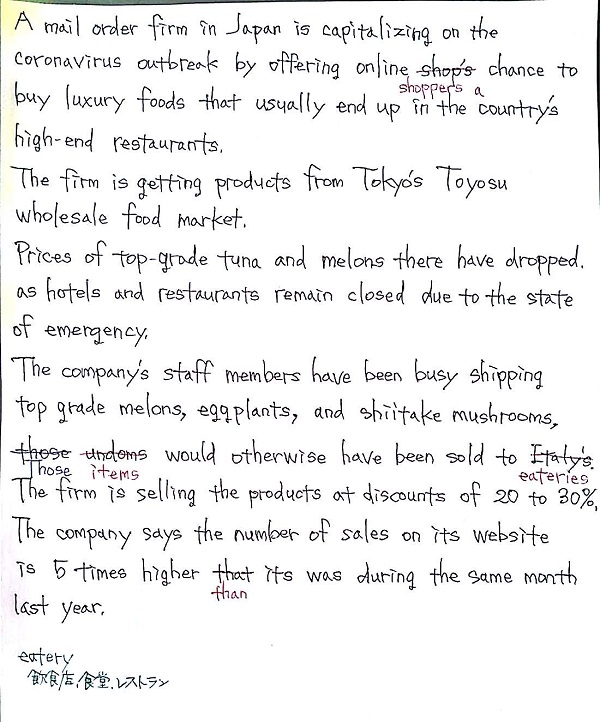 A mail order firm in Japan is capitalizing on the
coronavirus outbreak by offering online shop's chance to
shoppers a
buy luxury foods that usually end up in the country's
high-end restaurants.
The firm is getting products from Tokyo's Toyosu
wholesale food market.
Prices of top-grade tuna and melons there have dropped.
as hotels and restaurants remain closed due to the state
of emergency.
The company's staff members have been busy shipping
top grade melons, eggplants, and shiitake mushrooms,
those undoms would otherwise have been sold to Italy's.
Those items eateries
The firm is selling the products at discounts of 20 to 30%.
The company says the number of sales on its website
is 5 times higher that its was during the same month
than
last year.
eatery
飲食店,食堂.レストラン